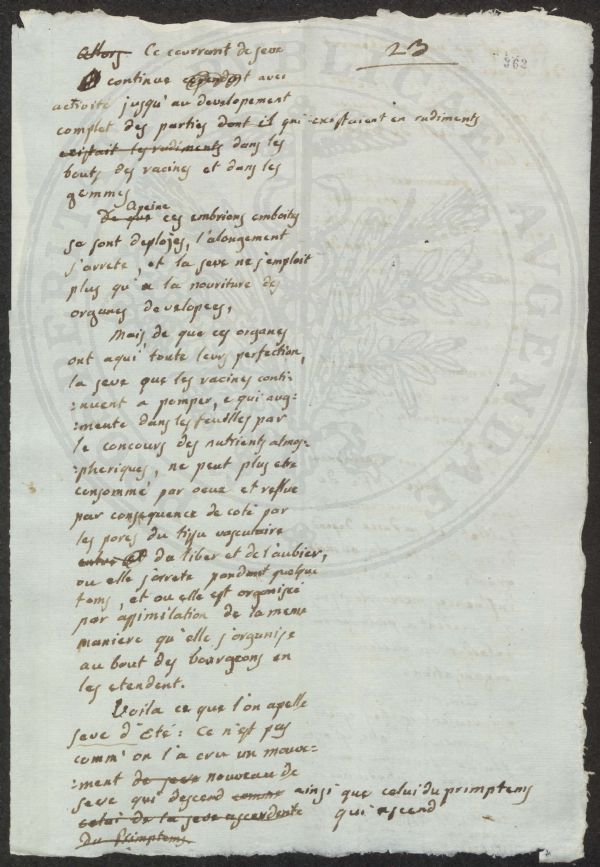 23
362
Allors Ce courrant de seve
continue cependant avec
activité jusqu'au developement
complet des parties dont il qui existaient en rudiments
existait les rudiments dans les
bouts des racines et dans les
gemmes
De que Apeine ces embrions emboités
sa sont deployes, l'alongement
s'arrete, et la seve ne s'emploit
plus qu'a la nouriture des
organes developees,
Mais de que ces organes
ont aqui toute leurs perfection,
la seve que les racines conti-
:nuent a pomper, e qui aug-
:mente dans les feuilles par
le concours des nutrients atmos-
:pheriques, ne peut plus etre
consommé par oeux et reflue
par consequence de coté par
les pores du tissu vasculaire
du liber et de l'aubier,
ou elle s'arrete pendant quelque
tems, et ou elle est organisée
par assimilation de la meme
maniere qu'elle s'organise
au bout des bourgeons en
les etendent.
Voila ce que l'on apelle
seve d'Eté: Ce n'est pas
comm' on l'a cru un mouve-
:ment de seve nouveau de
seve qui descend comme ainsi que celui du primptems
celui de la seve ascendente qui ascend
Du Primptems